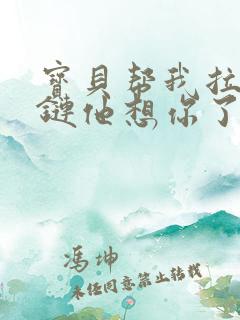 寳貝帮我拉
鏈他想你了
冯坤
未经同意禁止转载